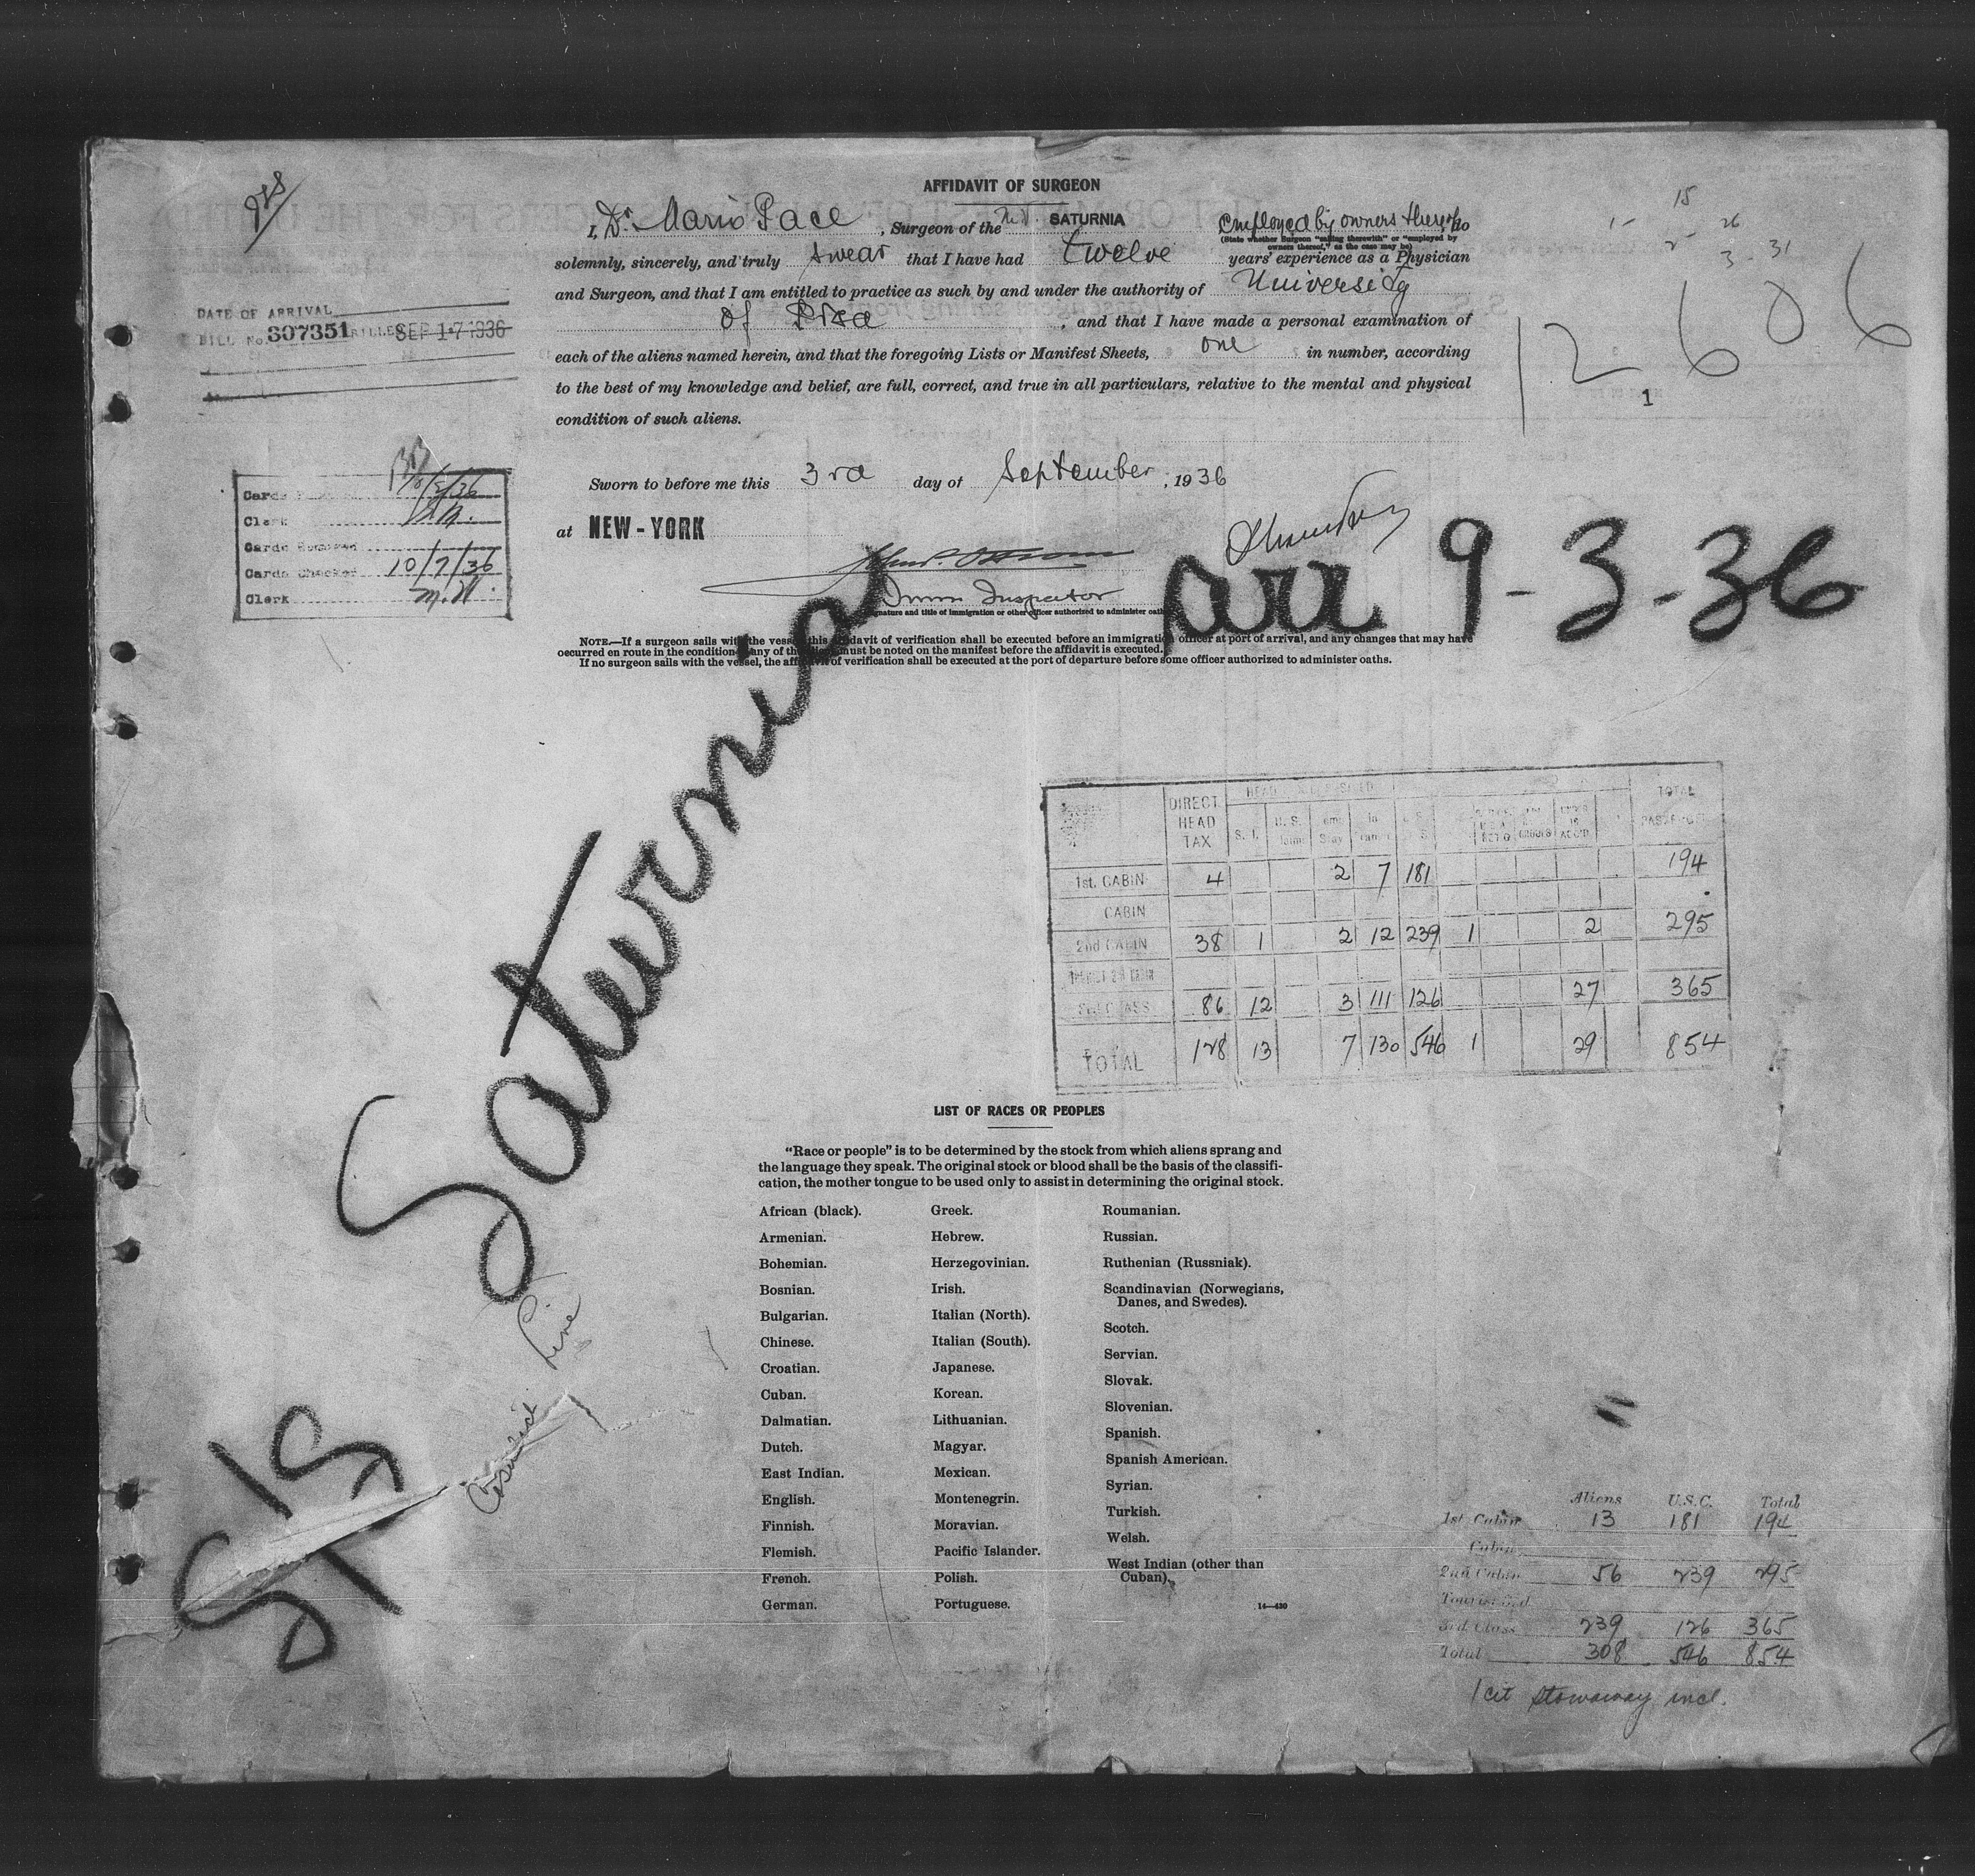 AFFIDAVIT OF SURGEON
I, Dr. Mario Pace, Surgeon of the M.V. SATURNIA employed by owners thereof, do
(State whether Surgeon "sailing therewith" or "employed by
owners thereof," as the case may be)
solemnly, sincerely, and truly swear that I have had twelve years' experience as a Physician
and Surgeon, and that I am entitled to practice as such by and under the authority of University
of Pisa, and that I have made a personal examination of
each of the aliens named herein, and that the foregoing Lists or Manifest Sheets, one in number, according
to the best of my knowledge and belief, are full, correct, and true in all particulars, relative to the mental and physical
condition of such aliens.
15
1 -
2 - 26
3 - 31
12606
1
DATE OF ARRIVAL
BILL No. 307351 BILLED SEP 17 1936
Sworn to before me this 3rd day of September, 1936
at NEW-YORK
Imm Inspector
Signature and title of immigration or other officer authorized to administer oath
arr 9-3-36
Clerk
Cards Checked 10/7/36
Clerk M.H.
NOTE.—If a surgeon sails with the vessel, this affidavit of verification shall be executed before an immigration officer at port of arrival, and any changes that may have
occurred en route in the condition of any of the aliens must be noted on the manifest before the affidavit is executed.
If no surgeon sails with the vessel, the affidavit of verification shall be executed at the port of departure before some officer authorized to administer oaths.
S/S Saturnia
Cosulich Line
DIRECT HEAD TAX S. I. U. S. TOTAL
1st. CABIN 4 2 7 181 194
CABIN
2nd CABIN 38 1 2 12 239 1 2 295
3rd CLASS 86 12 3 111 126 27 365
TOTAL 128 13 7 130 546 1 29 854
LIST OF RACES OR PEOPLES
"Race or people" is to be determined by the stock from which aliens sprang and
the language they speak. The original stock or blood shall be the basis of the classifi-
cation, the mother tongue to be used only to assist in determining the original stock.
African (black).
Armenian.
Bohemian.
Bosnian.
Bulgarian.
Chinese.
Croatian.
Cuban.
Dalmatian.
Dutch.
East Indian.
English.
Finnish.
Flemish.
French.
German.
Greek.
Hebrew.
Herzegovinian.
Irish.
Italian (North).
Italian (South).
Japanese.
Korean.
Lithuanian.
Magyar.
Mexican.
Montenegrin.
Moravian.
Pacific Islander.
Polish.
Portuguese.
Roumanian.
Russian.
Ruthenian (Russniak).
Scandinavian (Norwegians,
Danes, and Swedes).
Scotch.
Servian.
Slovak.
Slovenian.
Spanish.
Spanish American.
Syrian.
Turkish.
Welsh.
West Indian (other than
Cuban).
14—430
Aliens U.S.C. Total
1st Cabin 13 181 194
Cabin
2nd Cabin 56 239 295
Tourist 3rd
3rd Class 239 126 365
Total 308 546 854
1 cit stowaway incl.